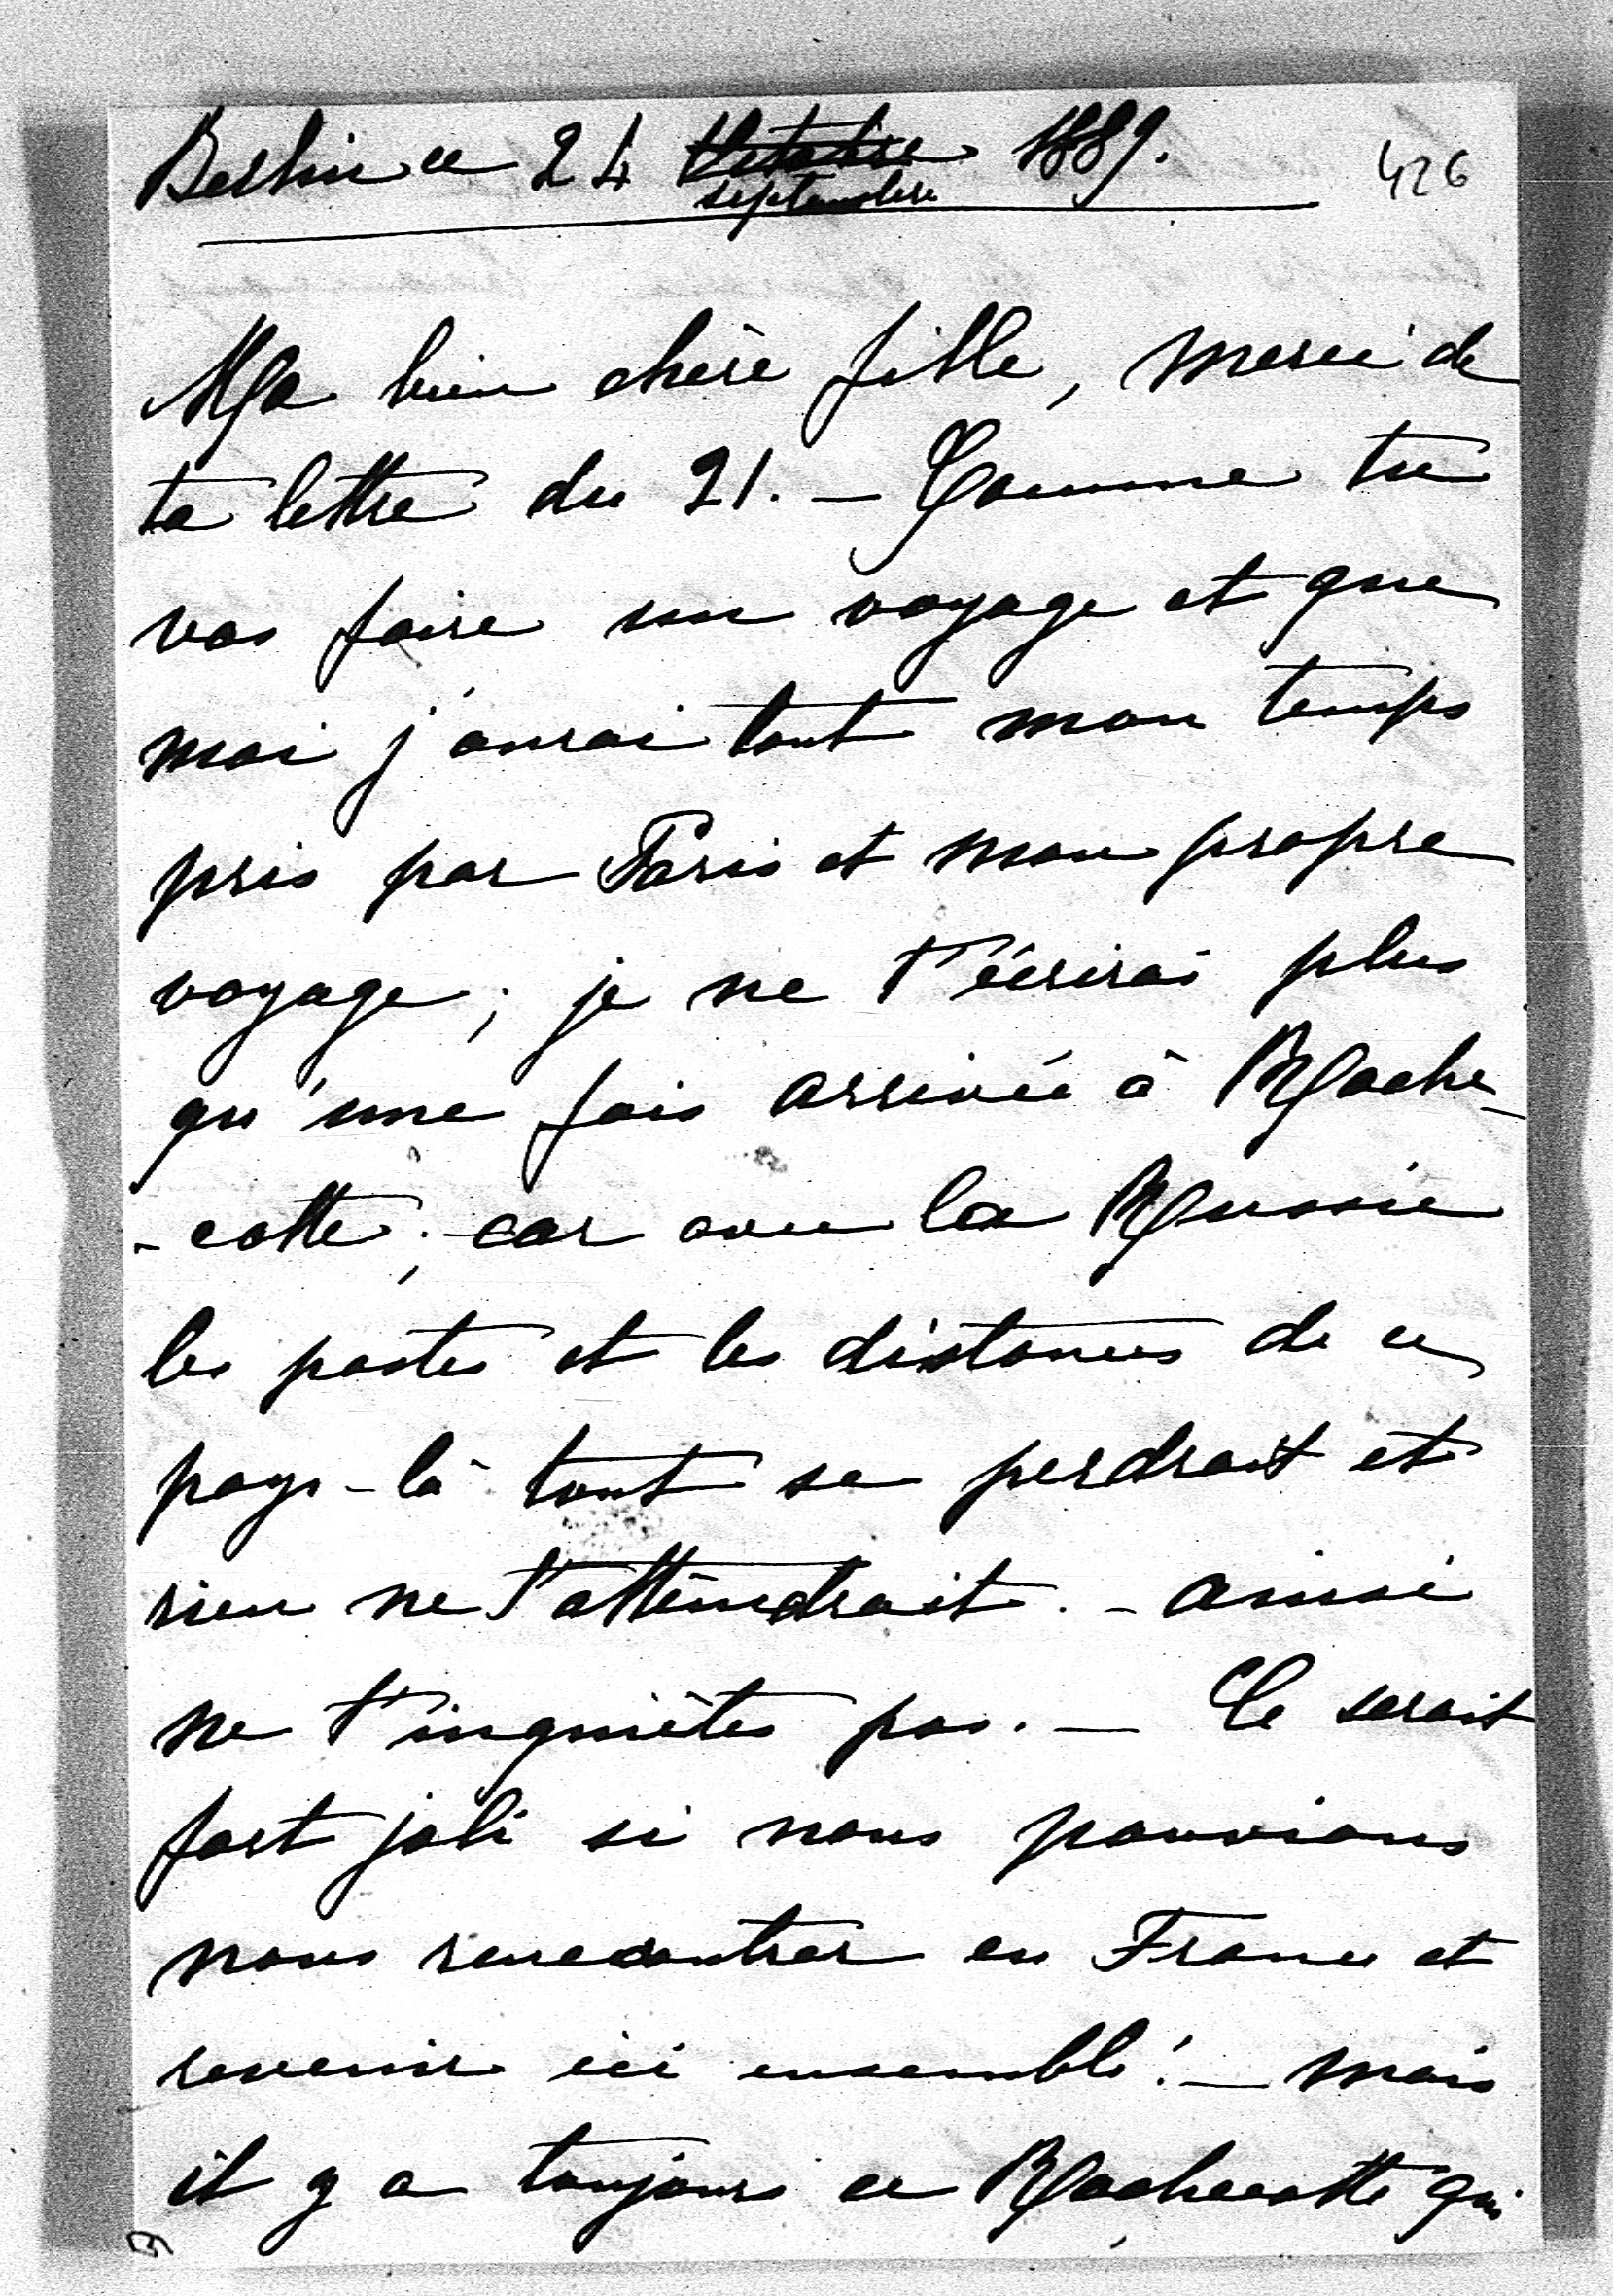 Berlin ce 24 Octobre 1889. 426
septembre
Ma bien chère fille, merci de
ta lettre du 21. – Comme tu
vas faire un voyage et que
moi j'aurai tout mon temps
pris par Paris et mon propre
voyage; je ne t'écrirai plus
qu'une fois arrivée à Roche-
-cotte; car avec la Russie
les postes et les distances de ce
pays-là tout se perdrait et
rien ne t'attendrait. – ainsi
ne t'inquiètes pas. – Ce serait
fort joli si nous pouvions
nous rencontrer en France et
revenir ici ensemble! – mais
il y a toujours ce Rochecotte qui